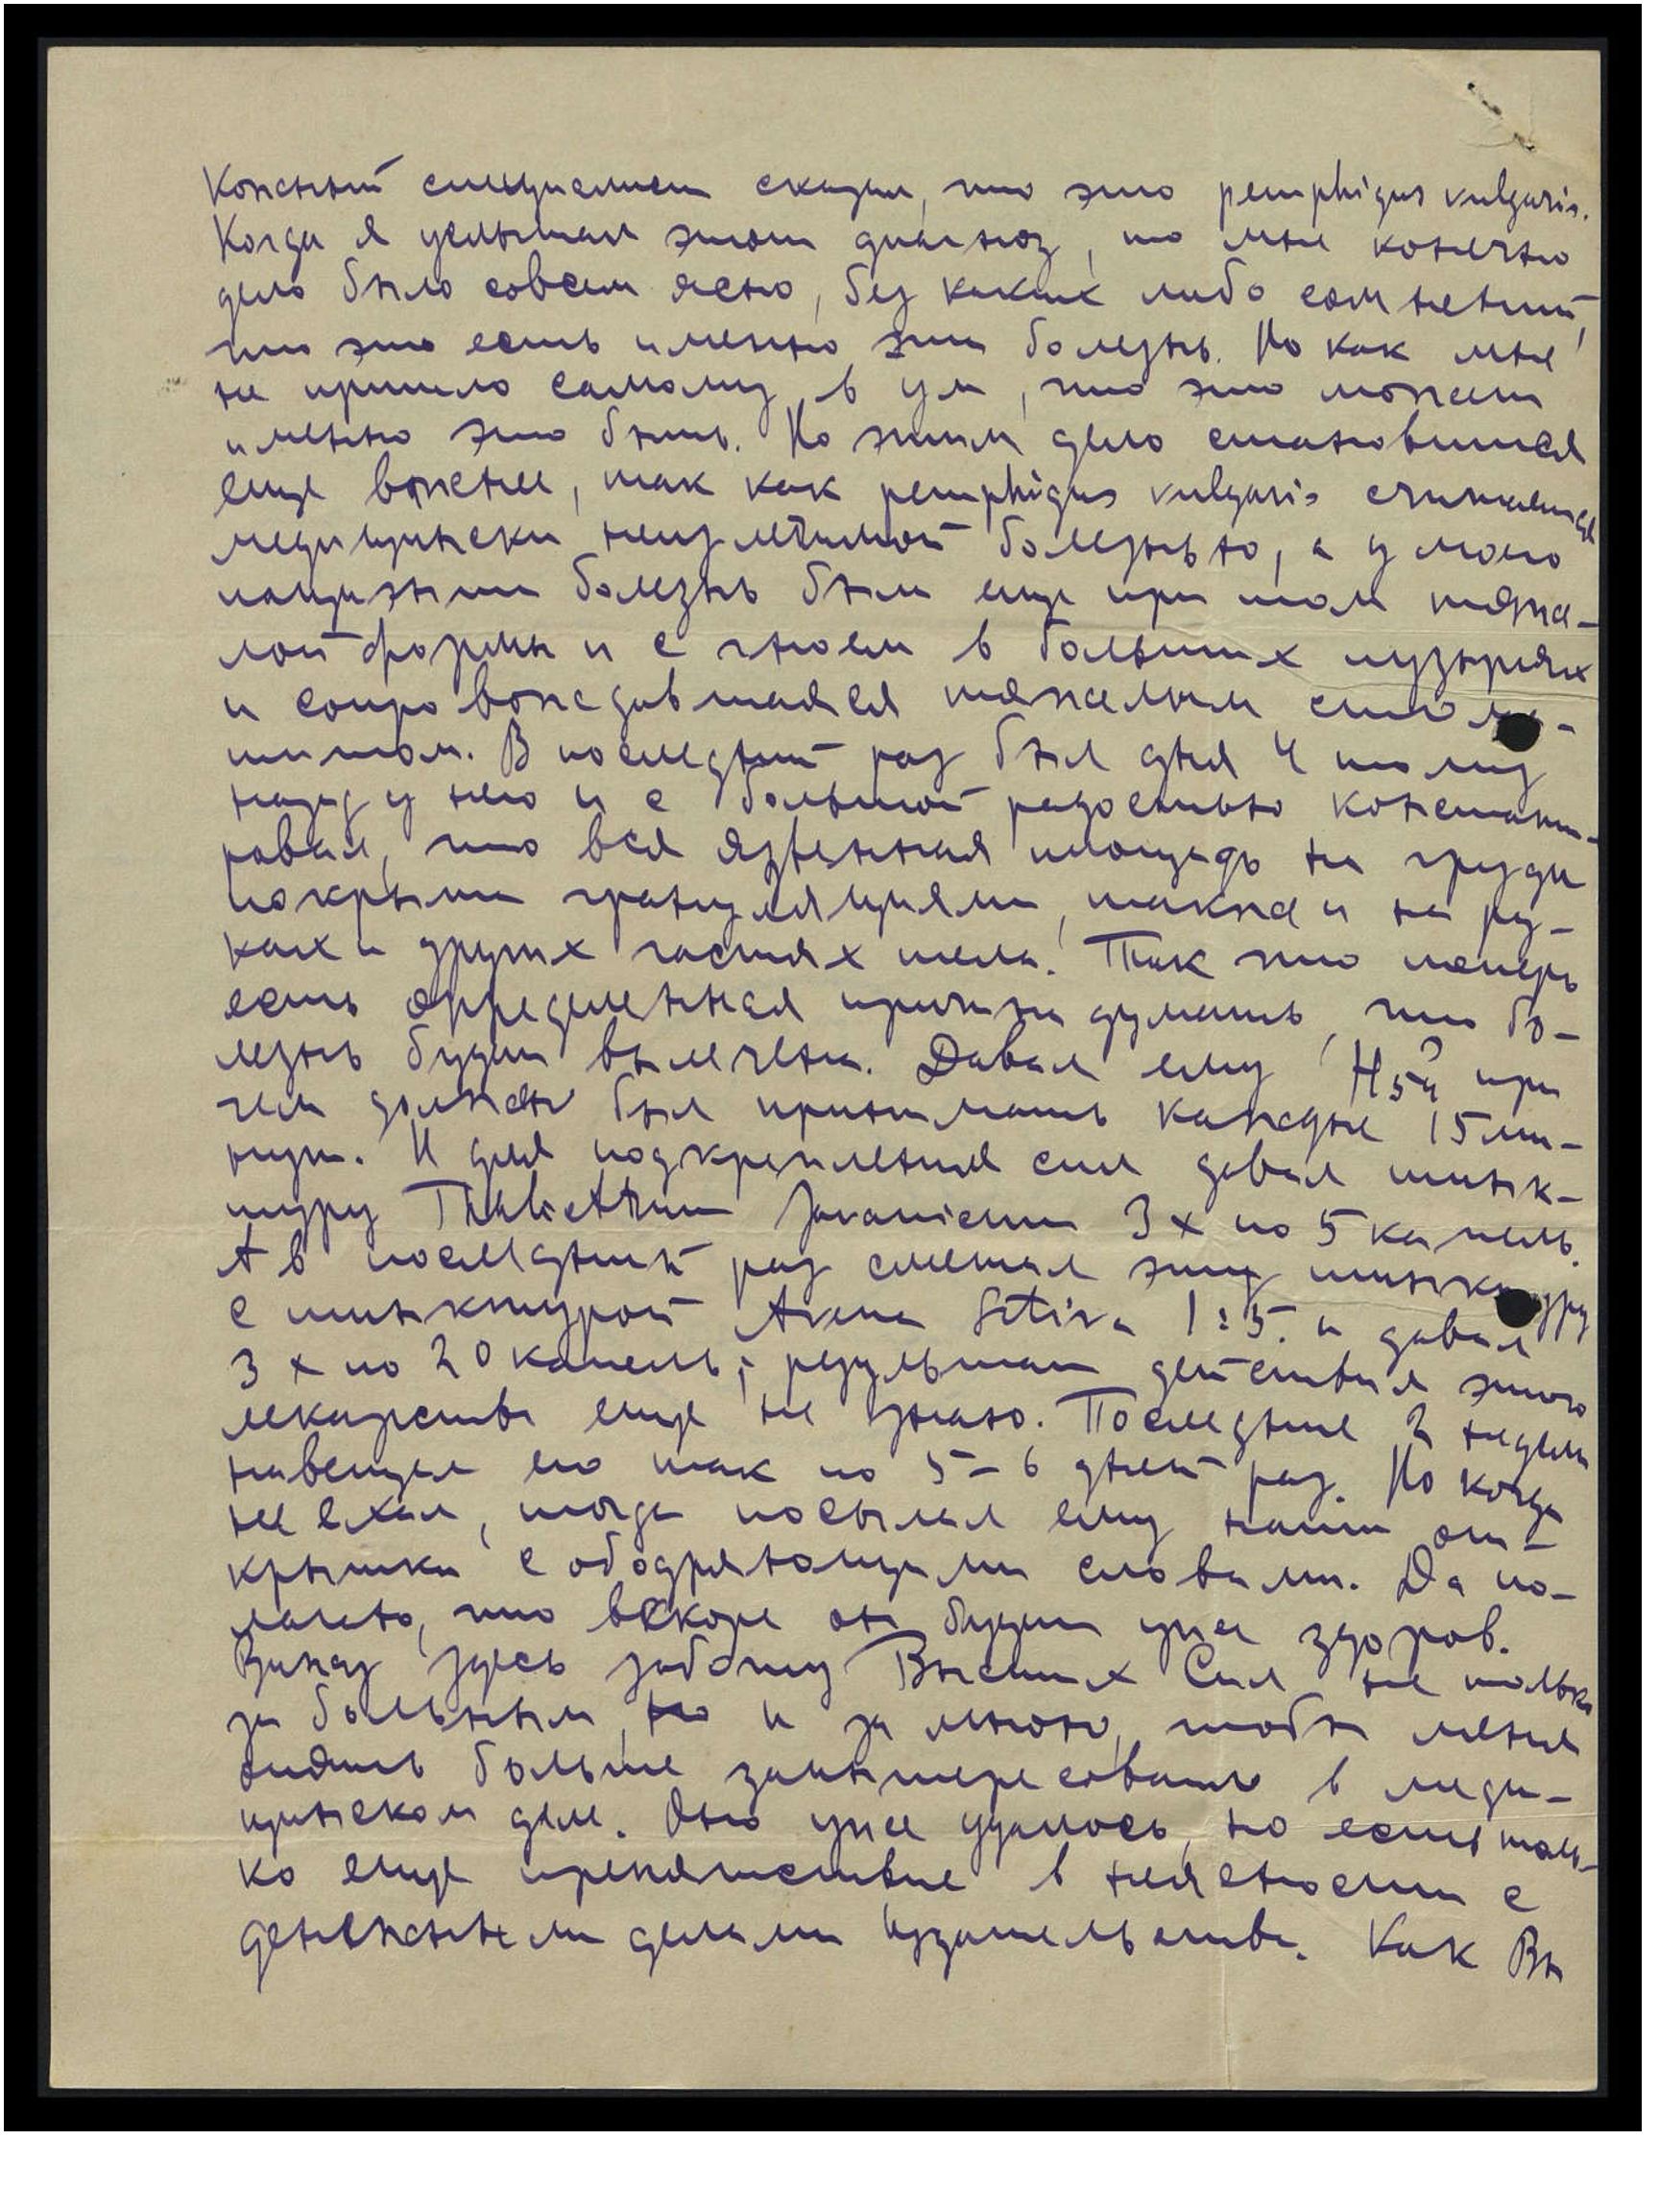 Кожный специалист сказал, что это pemphigus vulgaris.
Когда я услышал этот диагноз, то мне конечно
дело было совсем ясно, без каких либо сомнений,
что это есть именно эта болезнь. Но как мне
не пришло самому в ум, что это может
именно это быть. Но этим дело становится
еще важнее, так как pemphigus vulgaris считается
медицински неизлечимой болезнью, а у моего
пациента болезнь была еще при том тяже-
лой формы и с гноем в больших пузырях
и сопровождавшаяся тяжелым стома-
титом. В последний раз был дня 4 тому
назад у него и с большой радостью констати-
ровал, что вся язвенная площадь на груди
покрыта грануляциями, также и на ру-
ках и других частях тела. Так что теперь
есть определенная причина думать, что бо-
лезнь будет вылечена. Давал ему при
чем должен был принимать каждые 15 ми-
нут. И для подкрепления сил давал тинк-
туру Thalictrum Javanicum 3 x по 5 капель.
А в последний раз смешал эту тинктуру
с тинктурой Avena Sativa 1:5. и давал
3 x по 20 капель; результат действия этого
лекарства еще не знаю. Последние 2 недели
навещал его так по 5-6 дней раз. Но когда
не ехал, тогда посылал ему наши от-
крытки с ободряющими словами. Да по-
лагаю, что вскоре он будет уже здоров.
Вижу здесь заботу Высших Сил не только
за больным, но и за мною, чтобы меня
опять больше заинтересовать в меди-
цинском деле. Оно уже удалось, но есть толь-
ко еще препятствие в неясности с
денежными делами издательства. Как Вы